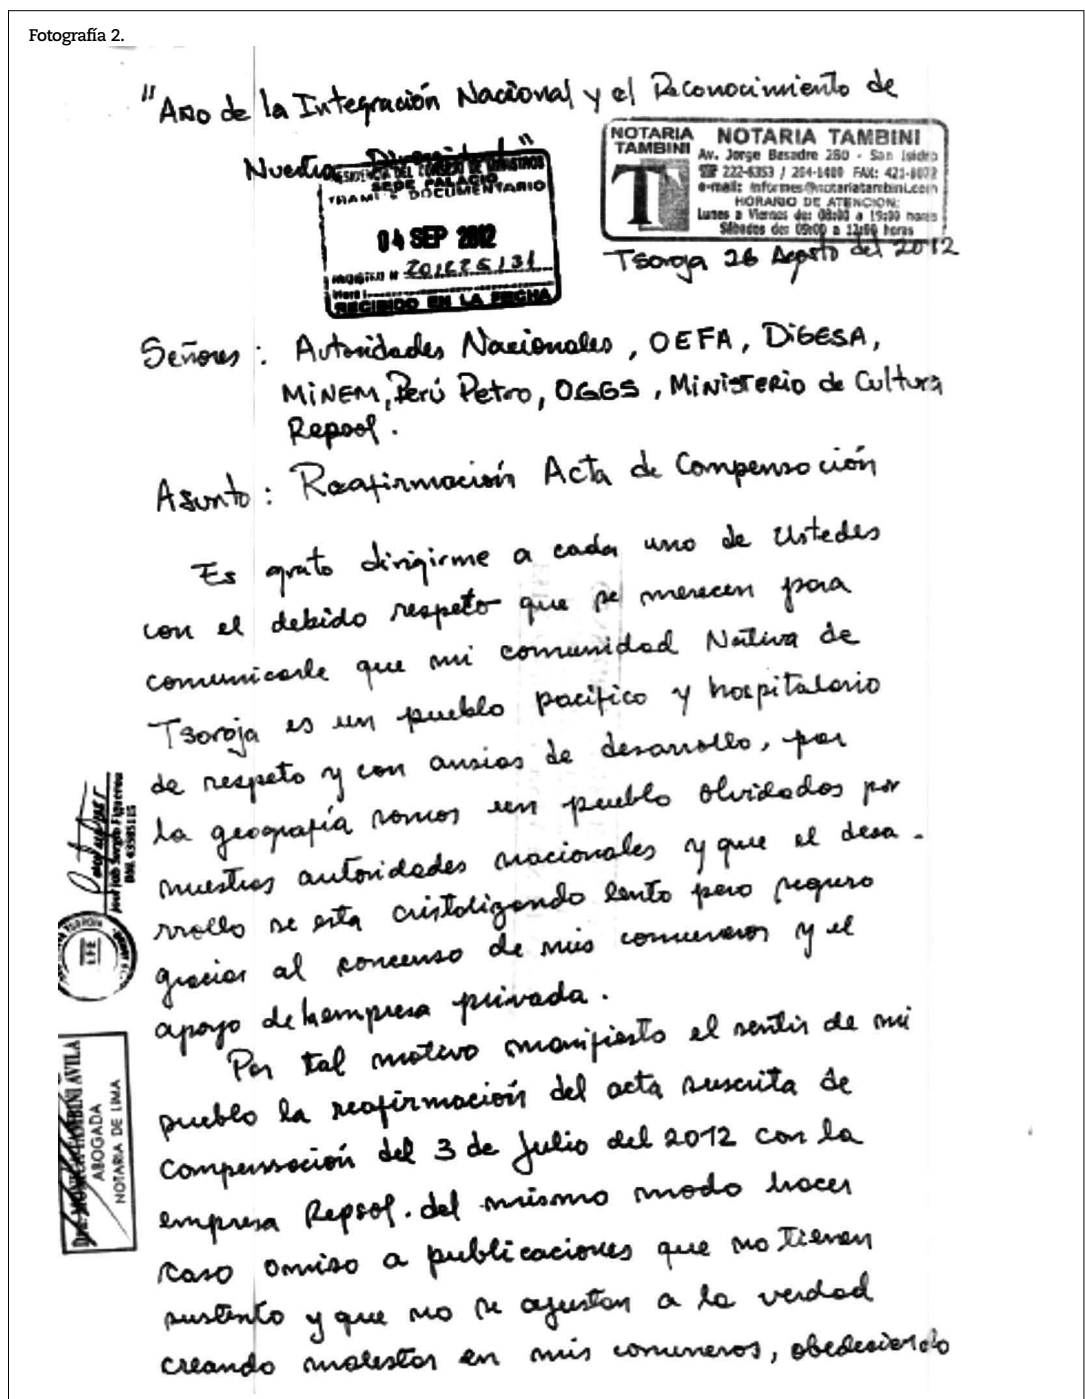 Fotografía 2.
"Año de la Integración Nacional y el Reconocimiento de
Nuestra Diversidad"
NOTARIA TAMBINI
NOTARIA TAMBINI
Av. Jorge Basadre 280 - San Isidro
☎ 222-6353 / 264-1400 FAX: 421-8072
e-mail: informes@notariatambini.com
HORARIO DE ATENCION:
Lunes a Viernes de: 08:00 a 19:00 horas
Sábados de: 09:00 a 12:00 horas
PRESIDENCIA DEL CONSEJO DE MINISTROS
SEDE PALACIO
TRAMITE DOCUMENTARIO
04 SEP 2012
RECIBIDO EN LA FECHA
Tsoroja 26 Agosto del 2012
Señores: Autoridades Nacionales, OEFA, DiGESA,
MiNEM, Perú Petro, OGGS, MiNiSTERiO de Cultura
Repsol.
Asunto: Reafirmación Acta de Compensación
Es grato dirigirme a cada uno de Ustedes
con el debido respeto que se merecen para
comunicarle que mi comunidad Nativa de
Tsoroja es un pueblo pacífico y hospitalario
de respeto y con ansias de desarrollo, por
la geografía somos un pueblo olvidados por
nuestras autoridades nacionales y que el desa-
rrollo se esta cristalizando lento pero seguro
gracias al concenso de mis comuneros y el
apoyo de la empresa privada.
Por tal motivo manifiesto el sentir de mi
pueblo la reafirmación del acta suscrita de
Compensación del 3 de Julio del 2012 con la
empresa Repsol. del mismo modo hacer
caso omiso a publicaciones que no tienen
sustento y que no se ajustan a la verdad
creando malestar en mis comuneros, obedeciendo
JEFE
Dra. MONICA TAMBINI AVILA
ABOGADA
NOTARIA DE LIMA